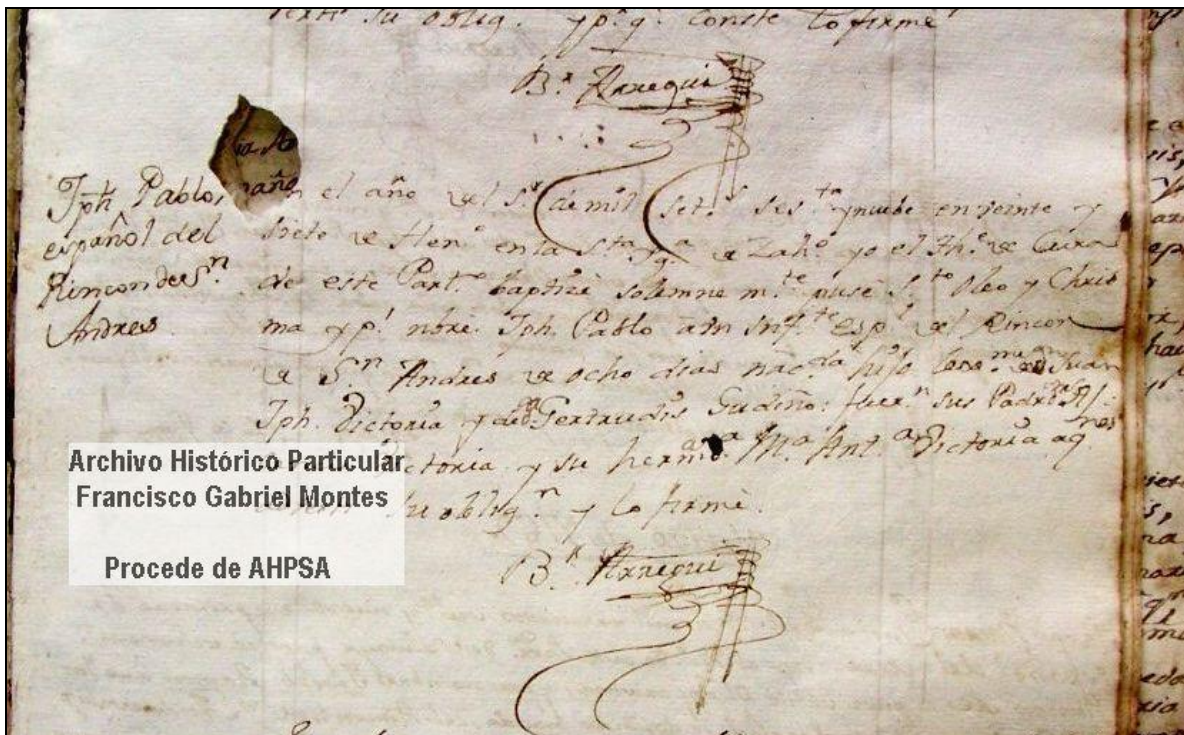 su oblig.n y p.a q.e conste lo firmé
B.r Arregui
Jph Pablo,
español del
Rincon de S.n
Andres
en el año del S.r de mil set.s ses.ta y nuebe en veinte y
siete de Hen.o en la S.ta Yg.a de Zah.o yo el Th.e de Cura
de este Part.o baptizé solemne m.te puse S.to Oleo y Chris
ma y p.r nbre. Jph. Pablo a un inf.te esp.l del Rincon
de S.n Andres de ocho dias nac.do hijo lexo.mo de Juan
Jph. Victoria y de Gertrudis Gudiño: fuer.n sus Padr.nos
Victoria y su herm.na M.a Ant.a Victoria a q.nes
su oblig.n y lo firmé.
B.r Arregui
Archivo Histórico Particular
Francisco Gabriel Montes
Procede de AHPSA